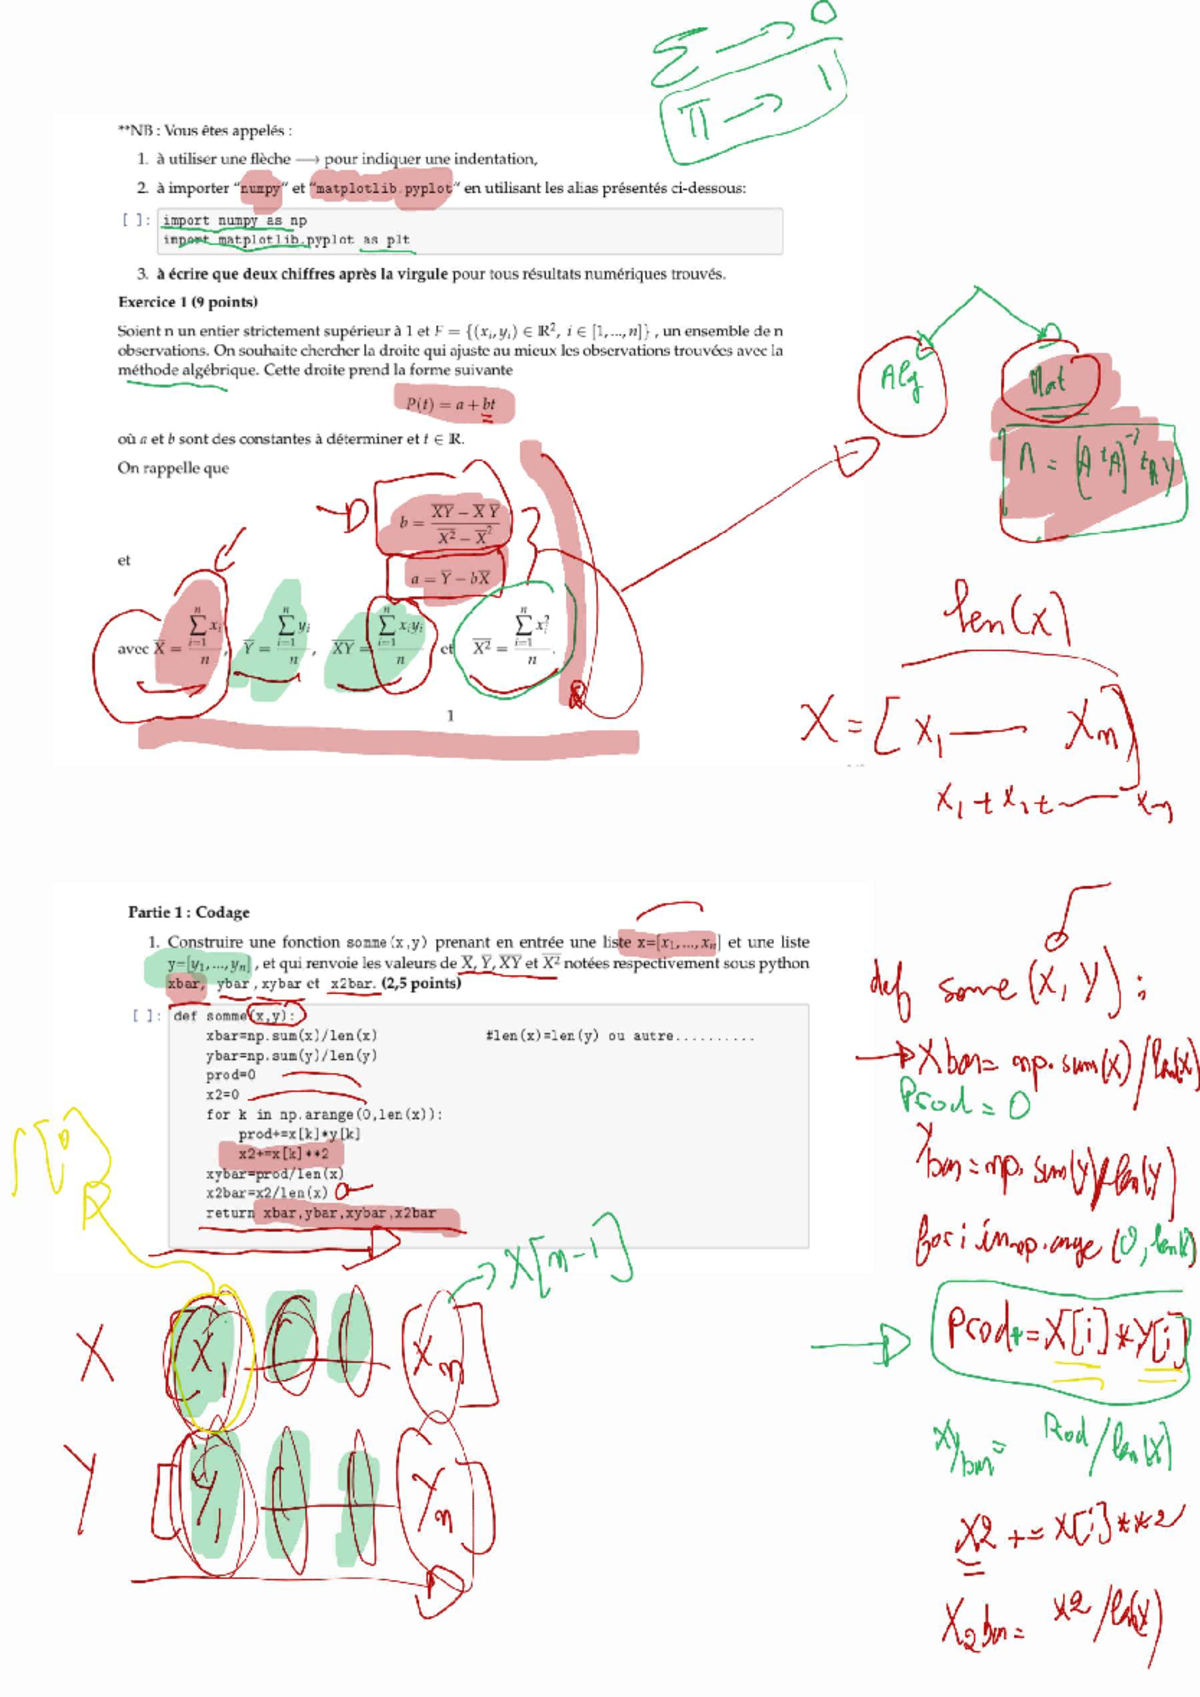 Σ → 0
Π → 1
**NB : Vous êtes appelés :
1. à utiliser une flèche ⟶ pour indiquer une indentation,
2. à importer “numpy“ et “matplotlib.pyplot“ en utilisant les alias présentés ci-dessous:
[ ]: import numpy as np
import matplotlib.pyplot as plt
3. à écrire que deux chiffres après la virgule pour tous résultats numériques trouvés.
Exercice 1 (9 points)
Soient n un entier strictement supérieur à 1 et F = {(xᵢ, yᵢ) ∈ ℝ², i ∈ [1, ..., n]} , un ensemble de n
observations. On souhaite chercher la droite qui ajuste au mieux les observations trouvées avec la
méthode algébrique. Cette droite prend la forme suivante
P(t) = a + bt
où a et b sont des constantes à déterminer et t ∈ ℝ.
On rappelle que
b = (X̅Y̅ − X̅ Y̅) / (X̅²̅ − X̅²)
et
a = Y̅ − bX̅
avec X̅ = ∑ᵢ₌₁ⁿ xᵢ / n, Y̅ = ∑ᵢ₌₁ⁿ yᵢ / n, X̅Y̅ = ∑ᵢ₌₁ⁿ xᵢyᵢ / n et X̅²̅ = ∑ᵢ₌₁ⁿ xᵢ² / n.
1
Alg
Mat
Λ = (A ᵗA)⁻¹ ᵗA Y
len(x)
X = [x₁ — xₙ]
x₁ + x₂ + — xₙ
Partie 1 : Codage
1. Construire une fonction somme(x,y) prenant en entrée une liste x=[x₁, ..., xₙ] et une liste
y=[y₁, ..., yₙ] , et qui renvoie les valeurs de X̅, Y̅, X̅Y̅ et X̅²̅ notées respectivement sous python
xbar, ybar , xybar et x2bar. (2,5 points)
[ ]: def somme(x,y):
xbar=np.sum(x)/len(x) #len(x)=len(y) ou autre..........
ybar=np.sum(y)/len(y)
prod=0
x2=0
for k in np.arange(0,len(x)):
prod+=x[k]*y[k]
x2+=x[k]**2
xybar=prod/len(x)
x2bar=x2/len(x)
return xbar,ybar,xybar,x2bar
def some (X, Y) :
Xbar= np.sum(x)/len(x)
Prod = 0
Ybar = np.sum(y)/len(y)
for i in np.arange (0, len(x))
Prod+=X[i]*Y[i]
xybar= Prod/len(x)
X2 += X[i]**2
X2bar= x2/len(x)
X[n-1]
X x₁ xₙ
Y y₁ yₙ